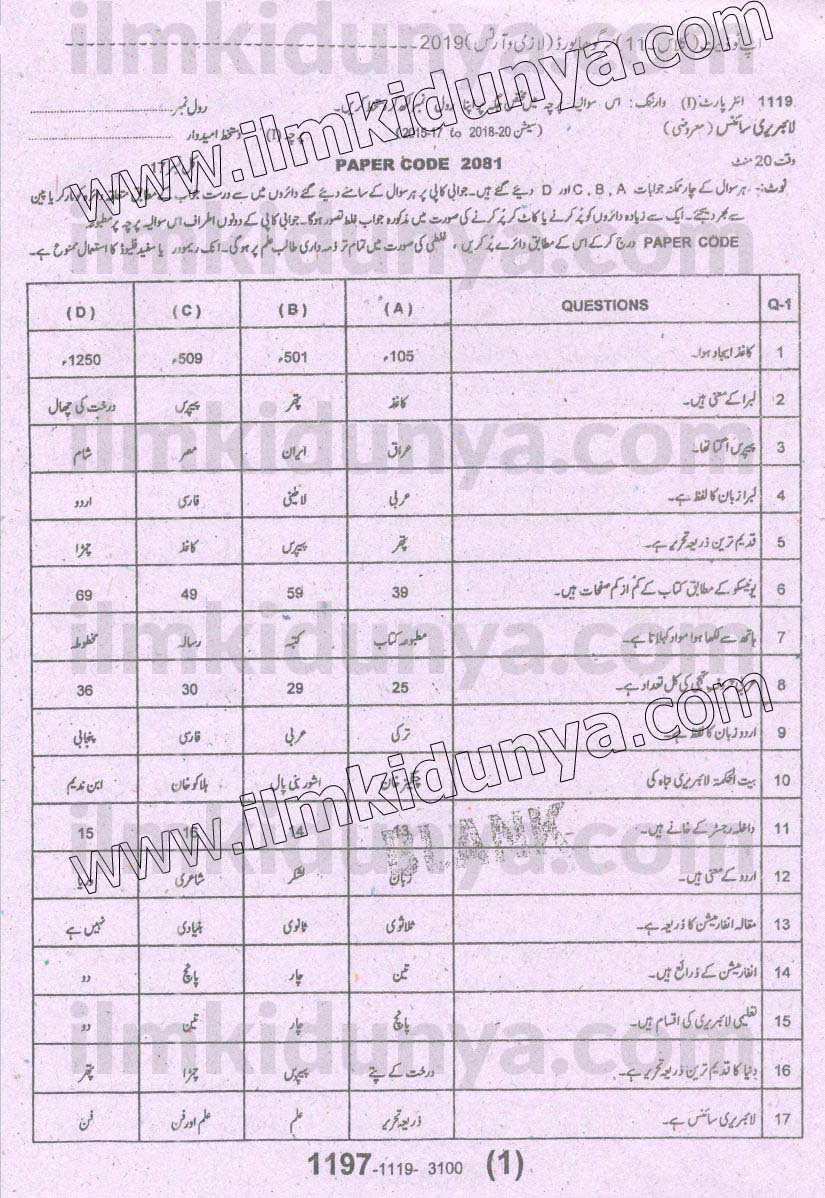 ilmkidunya.com
www.ilmkidunya.com
(لازمی و آرٹس) 2019
1119 انٹر پارٹ (I) وارننگ: اس سوالیہ پرچہ رول نمبر
لائبریری سائنس (معروضی) (سیشن 2015-17 to 2018-20) پرچہ (I) دستخط امیدوار
وقت 20 منٹ PAPER CODE 2081
نوٹ:۔ ہر سوال کے چار ممکنہ جوابات A ، B ، C اور D دیئے گئے ہیں۔ جوابی کاپی پر ہر سوال کے سامنے دیئے گئے دائروں میں سے درست جواب کے مطابق متعلقہ دائرہ کو مارکر یا پین
سے بھر دیجئے۔ ایک سے زیادہ دائروں کو پُر کرنے یا کاٹ کر پُر کرنے کی صورت میں مذکورہ جواب غلط تصور ہوگا۔ جوابی کاپی کے دونوں اطراف اس سوالیہ پرچہ پر مطبوعہ
PAPER CODE درج کر کے اس کے مطابق دائرے پُر کریں ، غلطی کی صورت میں تمام تر ذمہ داری طالب علم پر ہوگی۔ انک ریموور یا سفید فلیوڈ کا استعمال ممنوع ہے۔
Q-1 QUESTIONS (A) (B) (C) (D)
1 کاغذ ایجاد ہوا۔ 105ء 501ء 509ء 1250ء
2 لبرا کے معنی ہیں۔ کاغذ پتھر پیپرس درخت کی چھال
3 پیپرس اگتا تھا۔ عراق ایران مصر شام
4 لبرا زبان کا لفظ ہے۔ عربی لاطینی فارسی اردو
5 قدیم ترین ذریعہ تحریر ہے۔ پتھر پیپرس کاغذ چمڑا
6 یونیسکو کے مطابق کتاب کے کم از کم صفحات ہیں۔ 39 59 49 69
7 ہاتھ سے لکھا ہوا مواد کہلاتا ہے۔ مطبوعہ کتاب کتبہ رسالہ مخطوطہ
8 کی کل تعداد ہے۔ 25 29 30 36
9 اردو زبان کا لفظ ہے ترکی عربی فارسی پنجابی
10 بیت الحکمۃ لائبریری تباہ کی چنگیز خان اشور بنی پال ہلاکو خان ابن ندیم
11 داخلہ رجسٹر کے خانے ہیں۔ 13 14 16 15
12 اردو کے معنی ہیں۔ زبان لشکر شاعری
BLANK
13 مقالہ انفارمیشن کا ذریعہ ہے۔ ثلاثوی ثانوی بنیادی نہیں ہے
14 انفارمیشن کے ذرائع ہیں۔ تین چار پانچ دو
15 تعلیمی لائبریری کی اقسام ہیں۔ پانچ چار تین دو
16 دنیا کا قدیم ترین ذریعہ تحریر ہے۔ درخت کے پتے پیپرس چمڑا پتھر
17 لائبریری سائنس ہے۔ ذریعہ تحریر علم علم اور فن فن
www.ilmkidunya.com
1197-1119- 3100 (1)